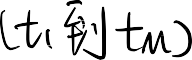 (t₁到tₘ)